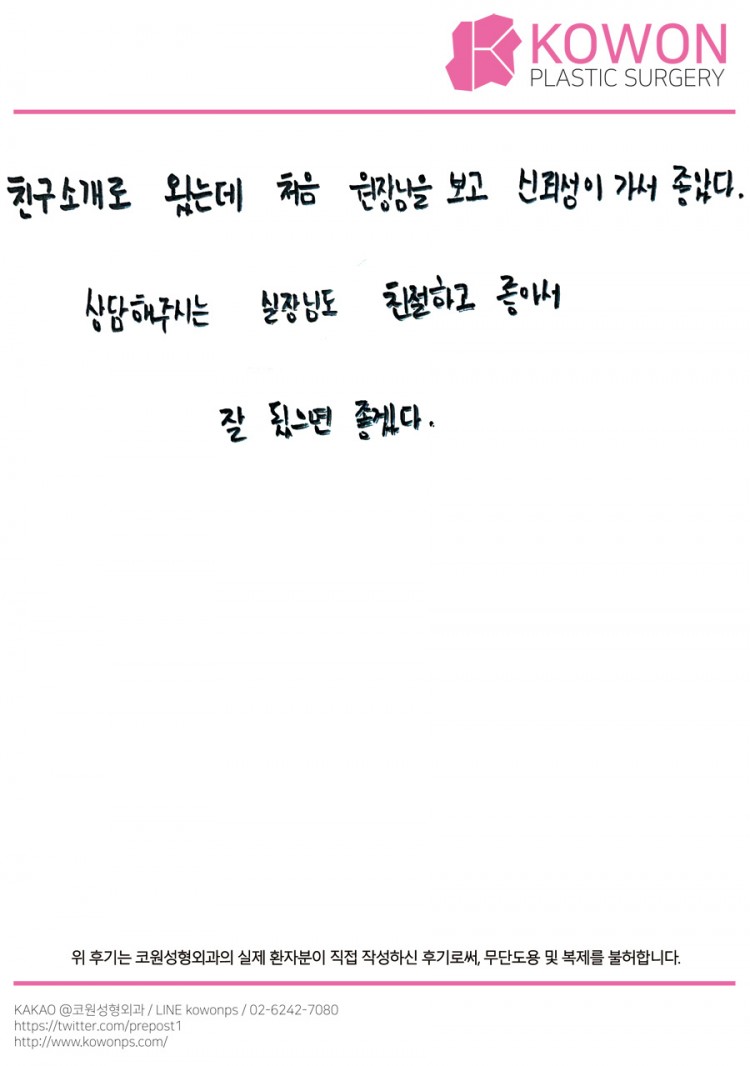 KOWON
PLASTIC SURGERY
친구소개로 왔는데 처음 원장님을 보고 신뢰성이 가서 좋았다.
상담해주시는 실장님도 친절하고 좋아서
잘 됬으면 좋겠다.
위 후기는 코원성형외과의 실제 환자분이 직접 작성하신 후기로써, 무단도용 및 복제를 불허합니다.
KAKAO @코원성형외과 / LINE kowonps / 02-6242-7080
https://twitter.com/prepost1
http://www.kowonps.com/